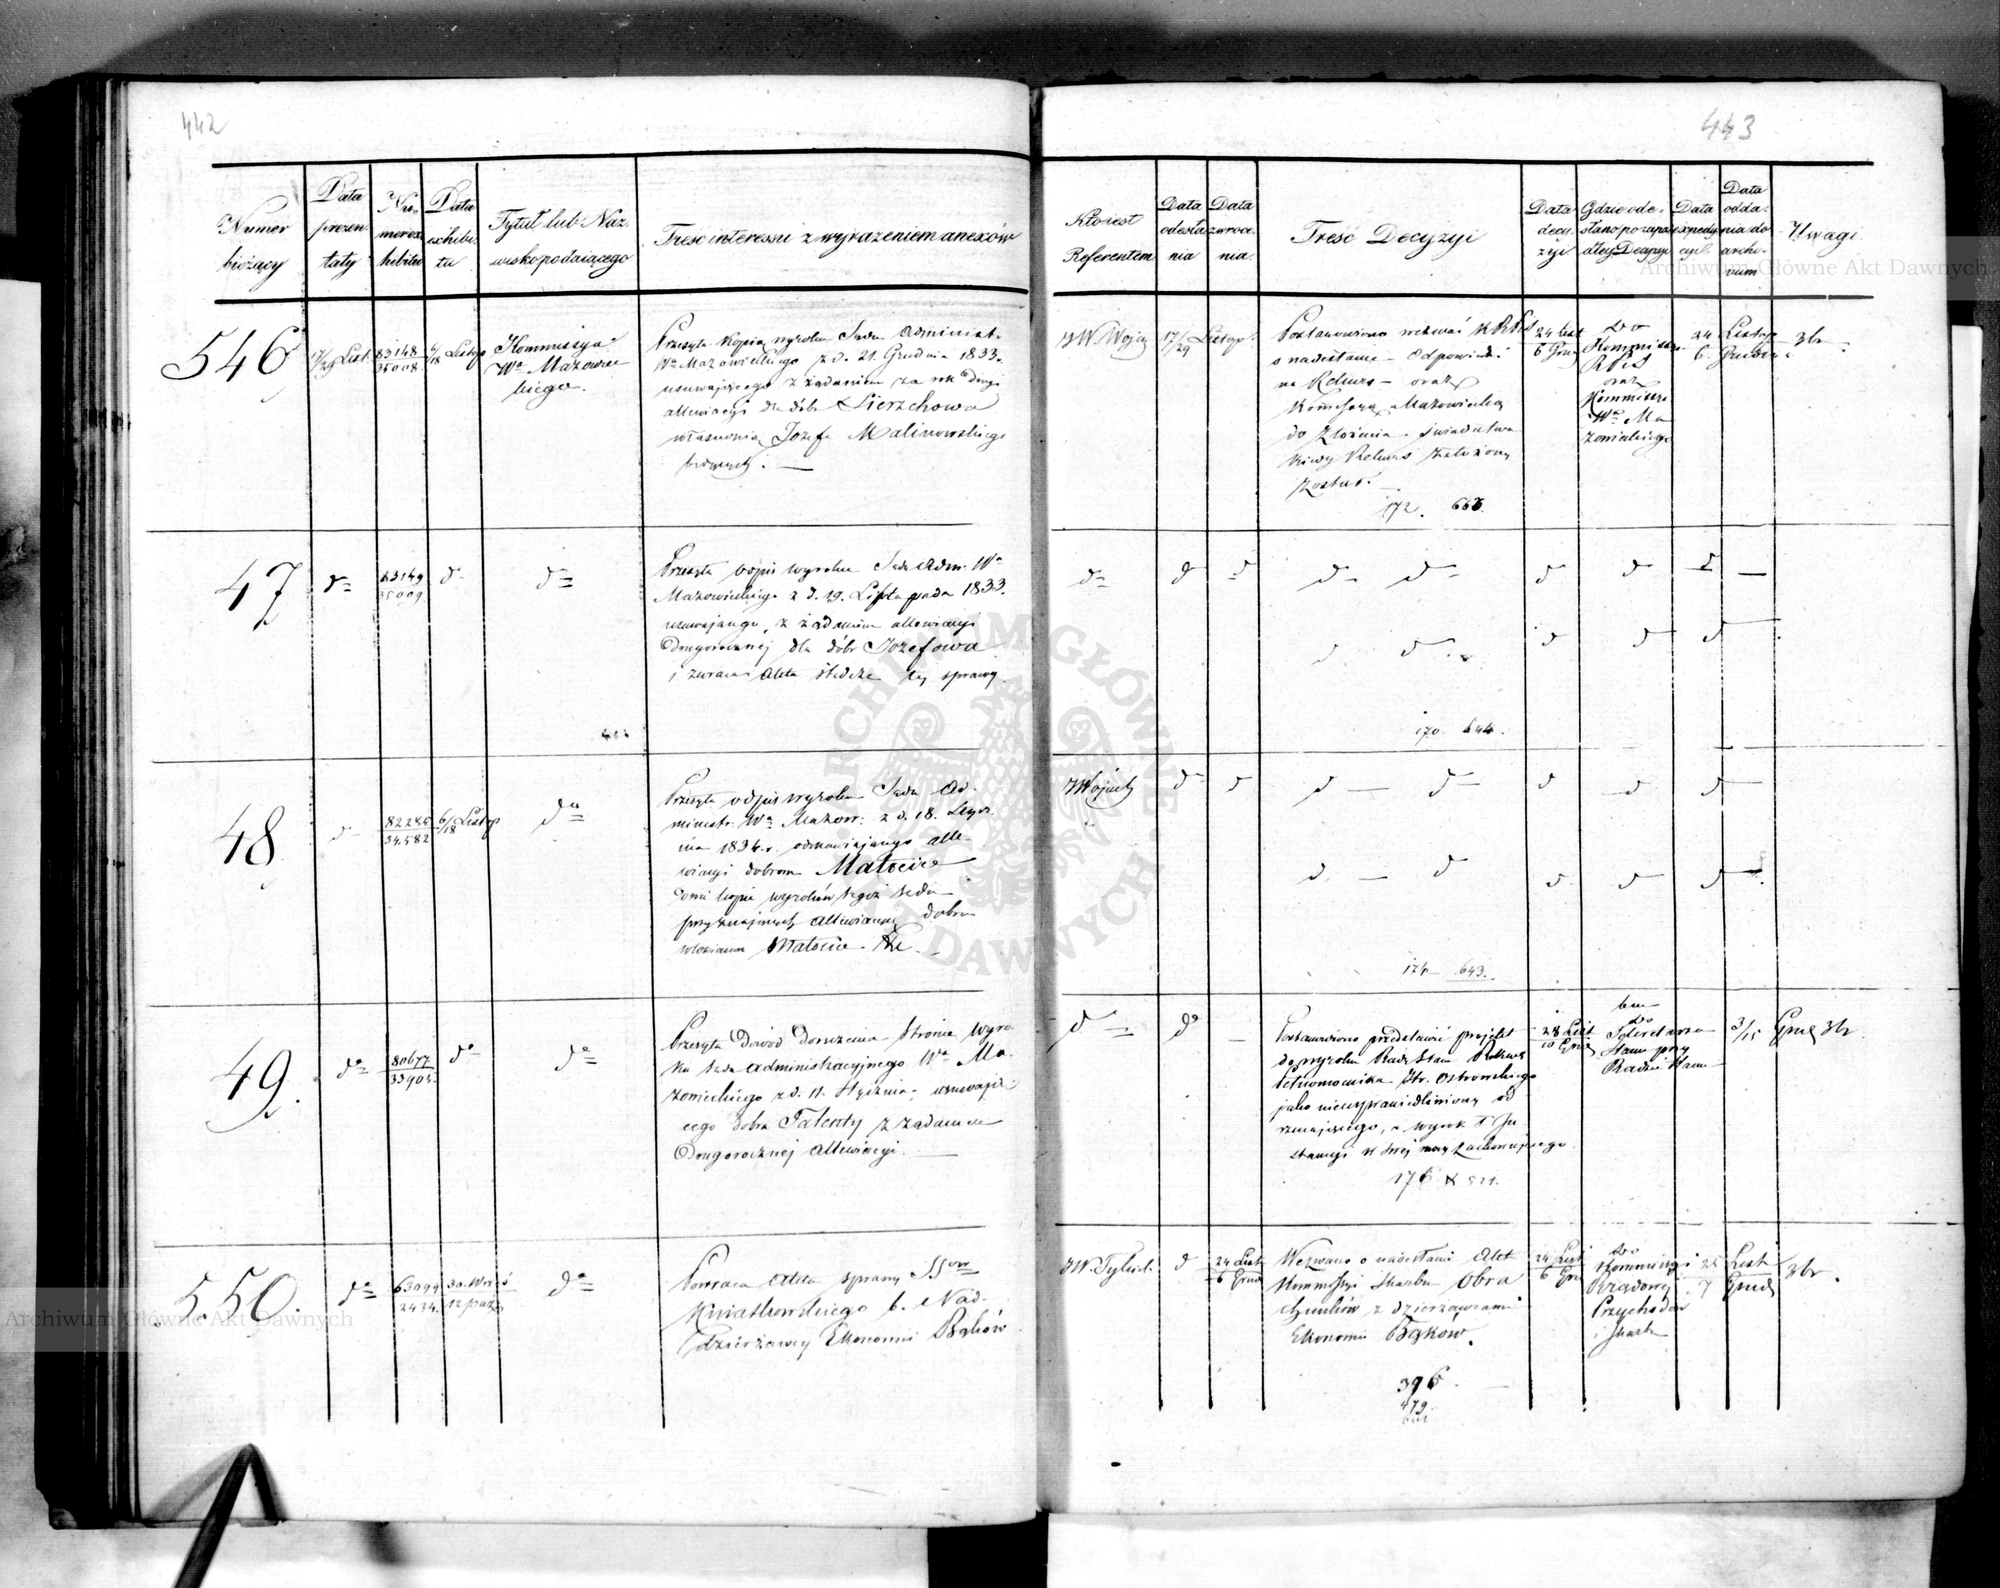 442
Numer bieżący
Data prezentaty
Numer exhibitu
Data exhibitu
Tytuł lub Nazwisko podaiącego
Treść interessu z wyrażeniem anexów
546
17/29 List.
83148
35008
6/18 Listop
Kommissya
Wa Mazowie
ckiego.
Przesyła kopią wyroku Sądu Administ.
Wa Mazowieckiego z d. 21. Grudnia 1833.
usuwającego z żądaniem za rok drugi
allewiacyi dla dóbr Sierzchowa
własnością Jozefa Malinowskiego
będących.
47
do
83149
35009
do
do
Przesyła odpis wyroku Sądu Adm. Wa
Mazowieckiego z d. 19. Listopada 1833.
usuwającego, z żądaniem allewiacyi
Drugorocznej dla dóbr Jozefowa
i zwraca Akta śledcze tej sprawy.
48
d
82285
34.582
6/18 Listop
do
Przesyła odpis wyroku Sądu Ad-
ministr. Wa Mazow: z d. 18.
1834.r. odmawiającego alle-
wiacyi dobrom Małocice
kopie wyroków tegoż Sądu
przyznających allewiacyą dobrom
Małocice
49.
do
80677
33904.
do
do
Przesyła Dowód Doręczenia Stronie Wyro
ku Sądu Administracyjnego Wa Ma-
zowieckiego z d. 11. Stycznia, usuwają-
cego dobra Talenty z żądaniem
Drugorocznej Allewiacyi.
5.50.
do
63099
2434.
30. Wrześ
12 paźd
do
Powraca Akta sprawy SSorów
Kwiatkowskiego b. Nad-
dzierżawcy Ekonomii Bąków
443
Któ iest Referentem
Data odesłania
Data zwrócenia.
Treść Decyzyi
Data decyzyi
Gdzie odesłano po zapadłey Decyzyi
Data expedycyi.
Data oddania do archivum
Uwagi
JW. Wojcic
17/29 Listop.
Postanowiono wezwać KRPiS
o nadesłanie Odpowiedzi
na Rekurs – oraz
Kommissyą Mazowiecką
do złożenia świadectwa
kiedy Rekurs założony
został.
172. 666.
24 List
6 Grud
do
Kommissyi
RPiS
oraz
Kommissyi
Wa Ma
zowieckiego
24 Listop
6. Grudn.
3br.
do
d
d
d
d
d
d
d
d
d
d
d
d
170. 644.
JWójcicki
d
d
d
d
d
d
d
d
d
d
d
d
174 643.
d
do
Postanowiono przedstawić projekt
do wyroku Rady Stanu Rekurs
Pełnomocnika Hr. Ostrowskiego
jako nieusprawiedliwiony od
rzucającego, a wyrok I In
stancyi w swej mocy zachowującego.
176 521.
28 List
10 Grud
do
Sekretarza
Stanu przy
Radzie Stanu
3/15 Grud
3br.
JW. Tylick.
d
24 List
6 Grud
Wezwano o nadesłanie Akt
Kommissyi Skarbu Obra
chunków z dzierżawcami
Ekonomii Bąków.
396.
479.
24 List
6 Gru
do
Kommissyi
Rządowej
Przychodów
i Skarbu
25 List
7 Grud
3br.
Archiwum Główne Akt Dawnych
Archiwum Główne Akt Dawnych
ARCHIWUM GŁÓWNE AKT DAWNYCH